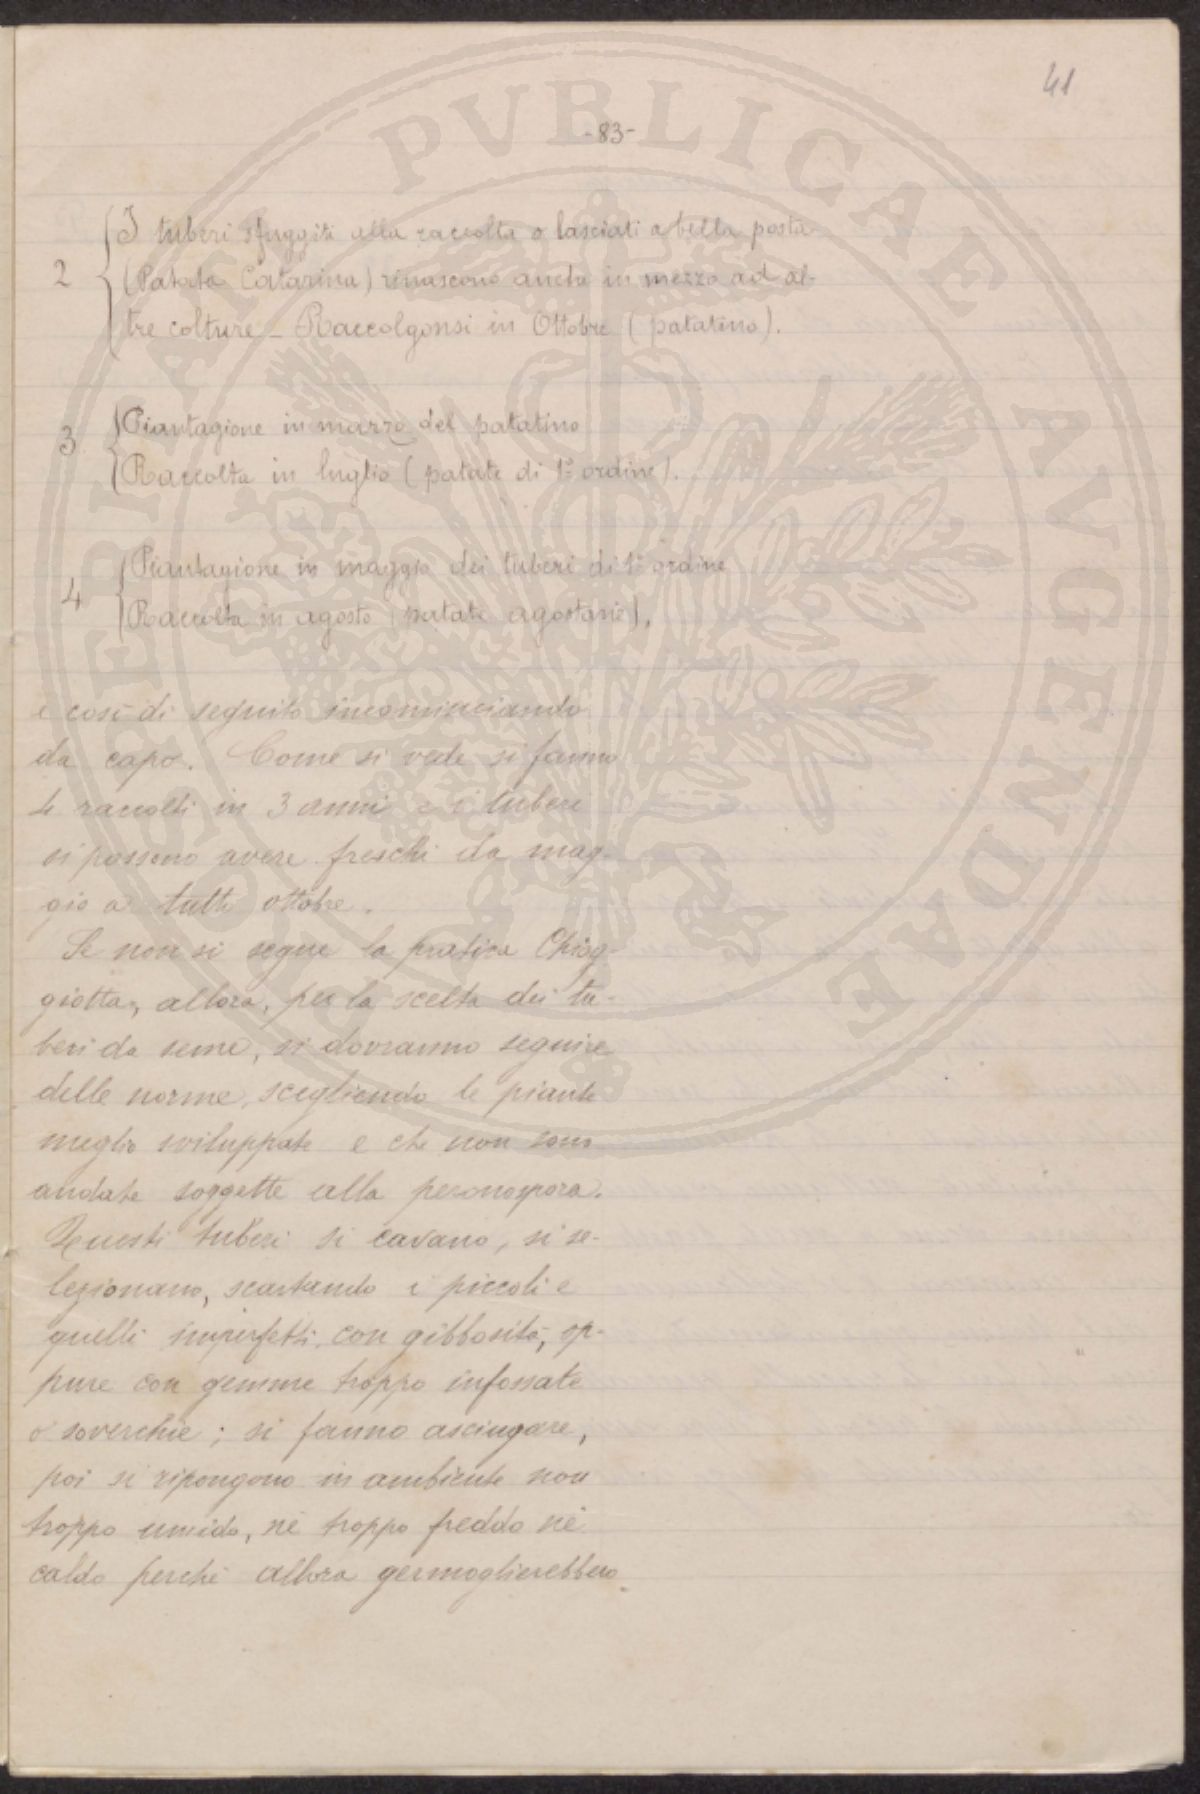 41
-83-
2 { I tuberi sfuggiti alla raccolta o lasciati a bella posta
(Patata Catarina) rinascono anche in mezzo ad al-
tre colture - Raccolgonsi in Ottobre (patatino).
3 { Piantagione in marzo del patatino
Raccolta in luglio (patate di 1° ordine).
4 { Piantagione in maggio dei tuberi di 1° ordine
Raccolta in agosto (patate agostane).
e così di seguito incominciando
da capo. Come si vede si fanno
4 raccolti in 3 anni e i tuberi
si possono avere freschi da mag-
gio a tutto ottobre.
Se non si segue la pratica Chiog-
giotta, allora, per la scelta dei tu-
beri da seme, si dovranno seguire
delle norme, scegliendo le piante
meglio sviluppate e che non sono
andate soggette alla peronospora.
Questi tuberi si cavano, si se-
lezionano, scartando i piccoli e
quelli imperfetti con gibbosità, op-
pure con gemme troppo infossate
o soverchie; si fanno asciugare,
poi si ripongono in ambiente non
troppo umido, nè troppo freddo nè
caldo perchè allora germoglierebbero.
PUBLICAE AVGENDAE PROSPERITATI